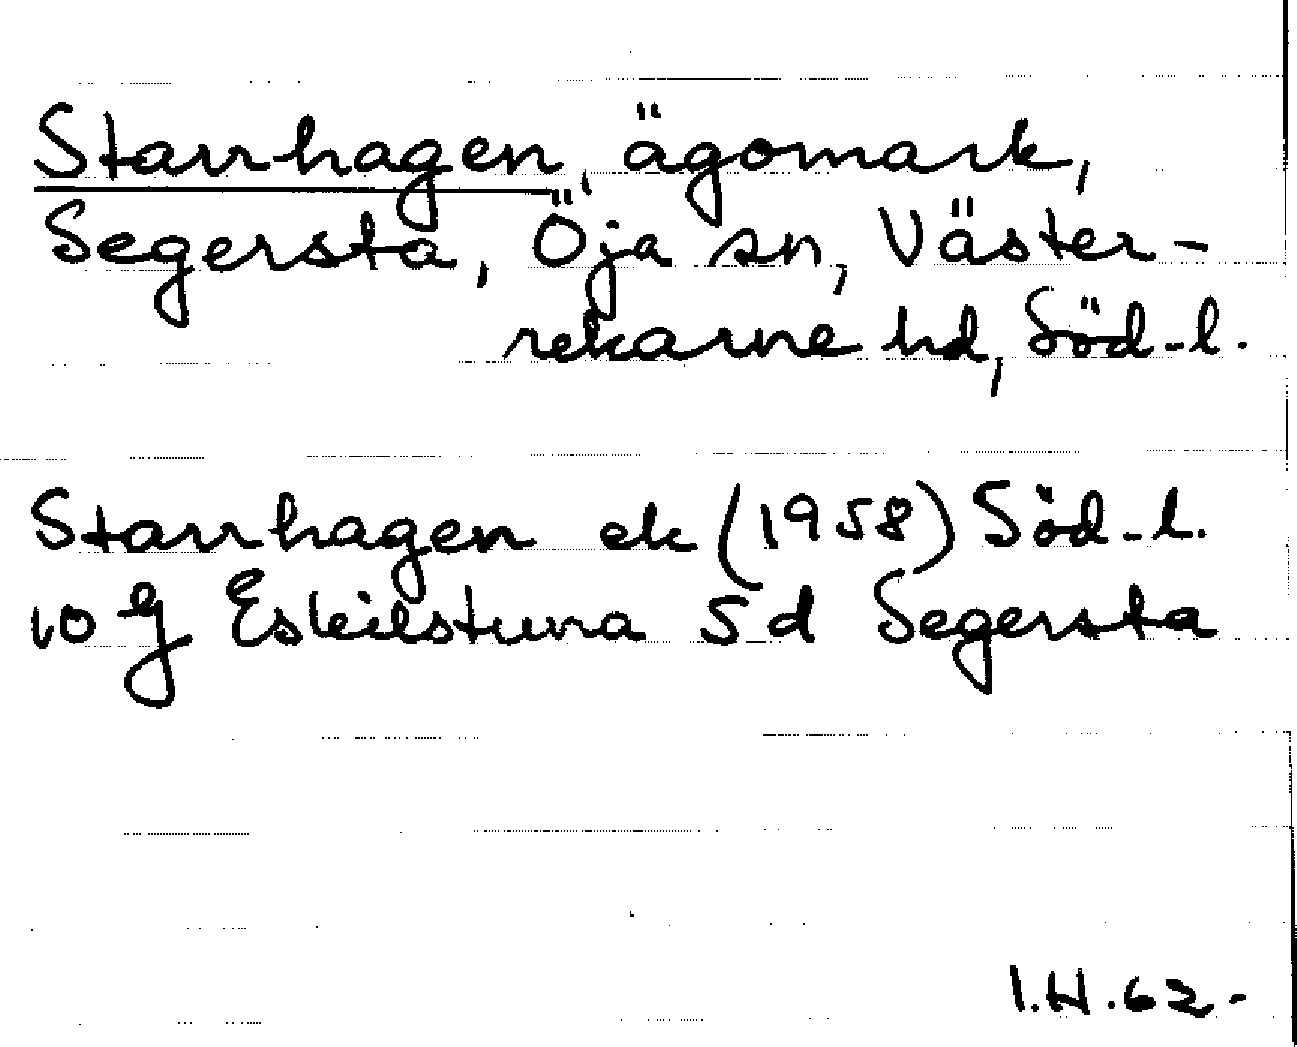 Starrhagen, ägomark,
Segersta, Öja sn, Väster-
rekarne hd, Söd-l.
Starrhagen ek (1958) Söd-l.
10 G Eskilstuna 5 d Segersta
I.H.62-